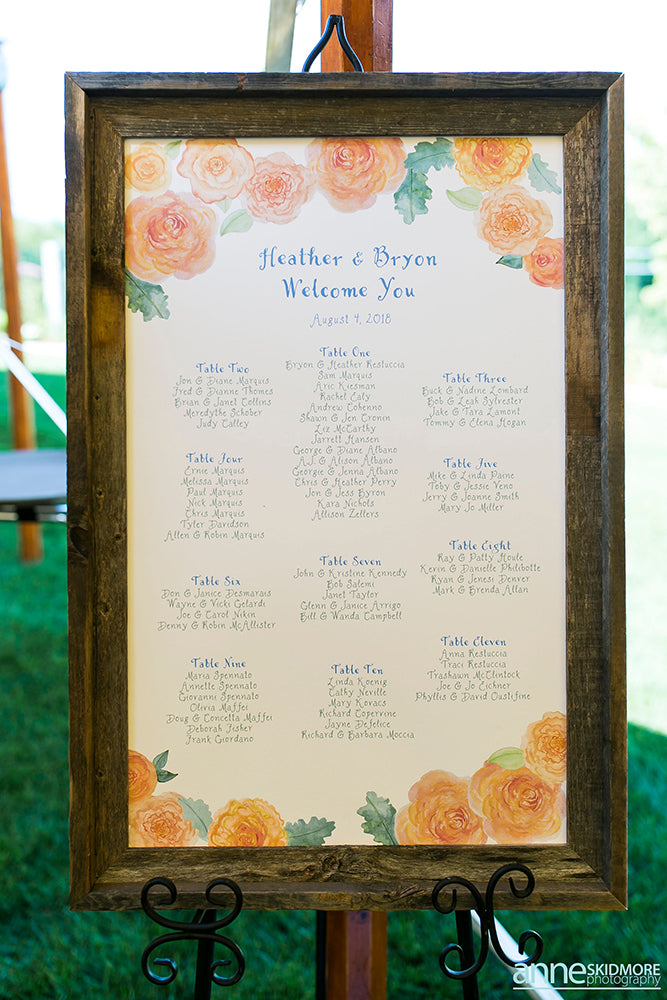 Heather & Bryon
Welcome You
August 4, 2018
Table One
Bryon & Heather Restuccia
Sam Marquis
Aric Kiesman
Rachel Ealy
Andrew Cohenno
Shawn & Jen Cronin
Liz McCarthy
Jarrett Hansen
George & Diane Albano
A.J. & Alison Albano
Georgie & Jenna Albano
Chris & Heather Perry
Jon & Jess Byron
Kara Nichols
Allison Zellers
Table Two
Jon & Diane Marquis
Fred & Dianne Thomes
Brian & Janet Collins
Meredythe Schober
Judy Talley
Table Three
Buck & Nadine Lombard
Bob & Leah Sylvester
Jake & Tara Lamont
Tommy & Elena Hogan
Table Four
Ernie Marquis
Melissa Marquis
Paul Marquis
Nick Marquis
Chris Marquis
Tyler Davidson
Allen & Robin Marquis
Table Five
Mike & Linda Paine
Toby & Jessie Veno
Jerry & Joanne Smith
Mary Jo Miller
Table Six
Don & Janice Desmarais
Wayne & Vicki Gelardi
Joe & Carol Nikin
Denny & Robin McAllister
Table Seven
John & Kristine Kennedy
Bob Salemi
Janet Taylor
Glenn & Janice Arrigo
Bill & Wanda Campbell
Table Eight
Ray & Patty Houle
Kevin & Danielle Philibotte
Ryan & Jenesi Denver
Mark & Brenda Allan
Table Nine
Maria Spennato
Annette Spennato
Giovanni Spennato
Olivia Maffei
Doug & Concetta Maffei
Deborah Fisher
Frank Giordano
Table Ten
Linda Koenig
Cathy Neville
Mary Kovacs
Richard Copervine
Jayne Defelice
Richard & Barbara Moccia
Table Eleven
Anna Restuccia
Traci Restuccia
Trashawn McClintock
Joe & Jo Eichner
Phyllis & David Oustifine
anne SKIDMORE
photography